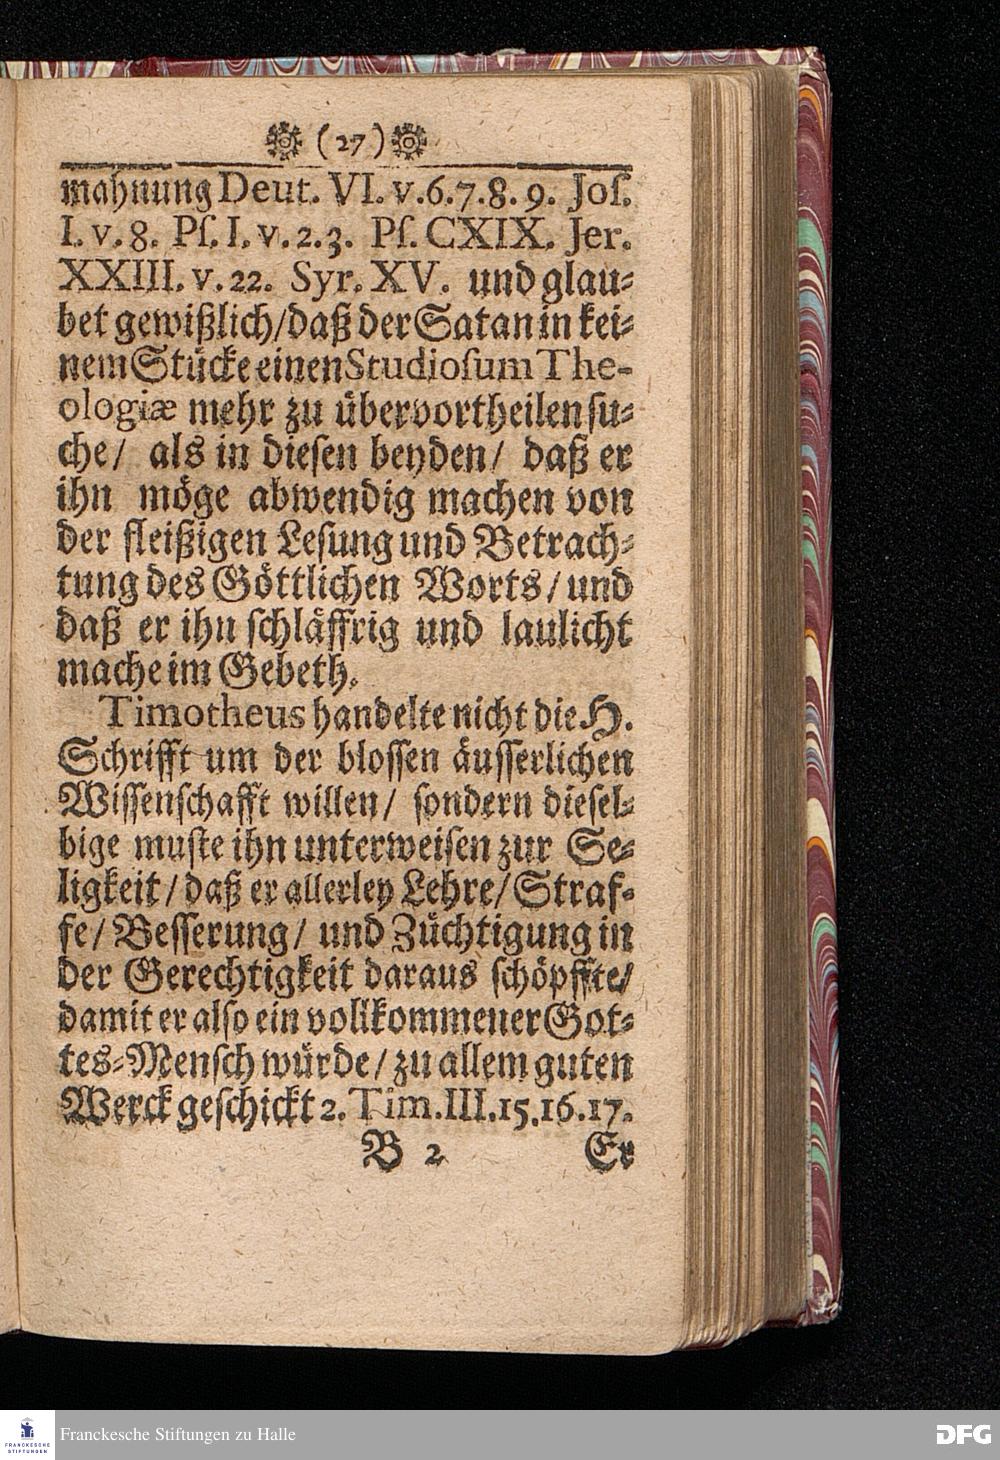 (27)
mahnung Deut. VI. v.6.7.8.9. Joſ.
I. v. 8. Pſ. I. v. 2. 3. Pſ. CXIX. Jer.
XXIII. v. 22. Syr. XV. und glau⸗
bet gewißlich/ daß der Satan in kei⸗
nem Stücke einen Studioſum The-
ologiæ mehr zu übervortheilen ſu⸗
che/ als in dieſen beyden/ daß er
ihn möge abwendig machen von
der fleißigen Leſung und Betrach⸗
tung des Göttlichen Worts/ und
daß er ihn ſchläffrig und laulicht
mache im Gebeth.
Timotheus handelte nicht die H.
Schrifft um der bloſſen äuſſerlichen
Wiſſenſchafft willen/ ſondern dieſel⸗
bige muſte ihn unterweiſen zur Se⸗
ligkeit/ daß er allerley Lehre/ Straf⸗
fe/ Beſſerung/ und Züchtigung in
der Gerechtigkeit daraus ſchöpffte/
damit er alſo ein vollkommener Got⸗
tes⸗Menſch würde/ zu allem guten
Werck geſchickt 2. Tim. III. 15. 16. 17.
B 2 Er
FRANCKESCHE STIFTUNGEN
Franckesche Stiftungen zu Halle
DFG